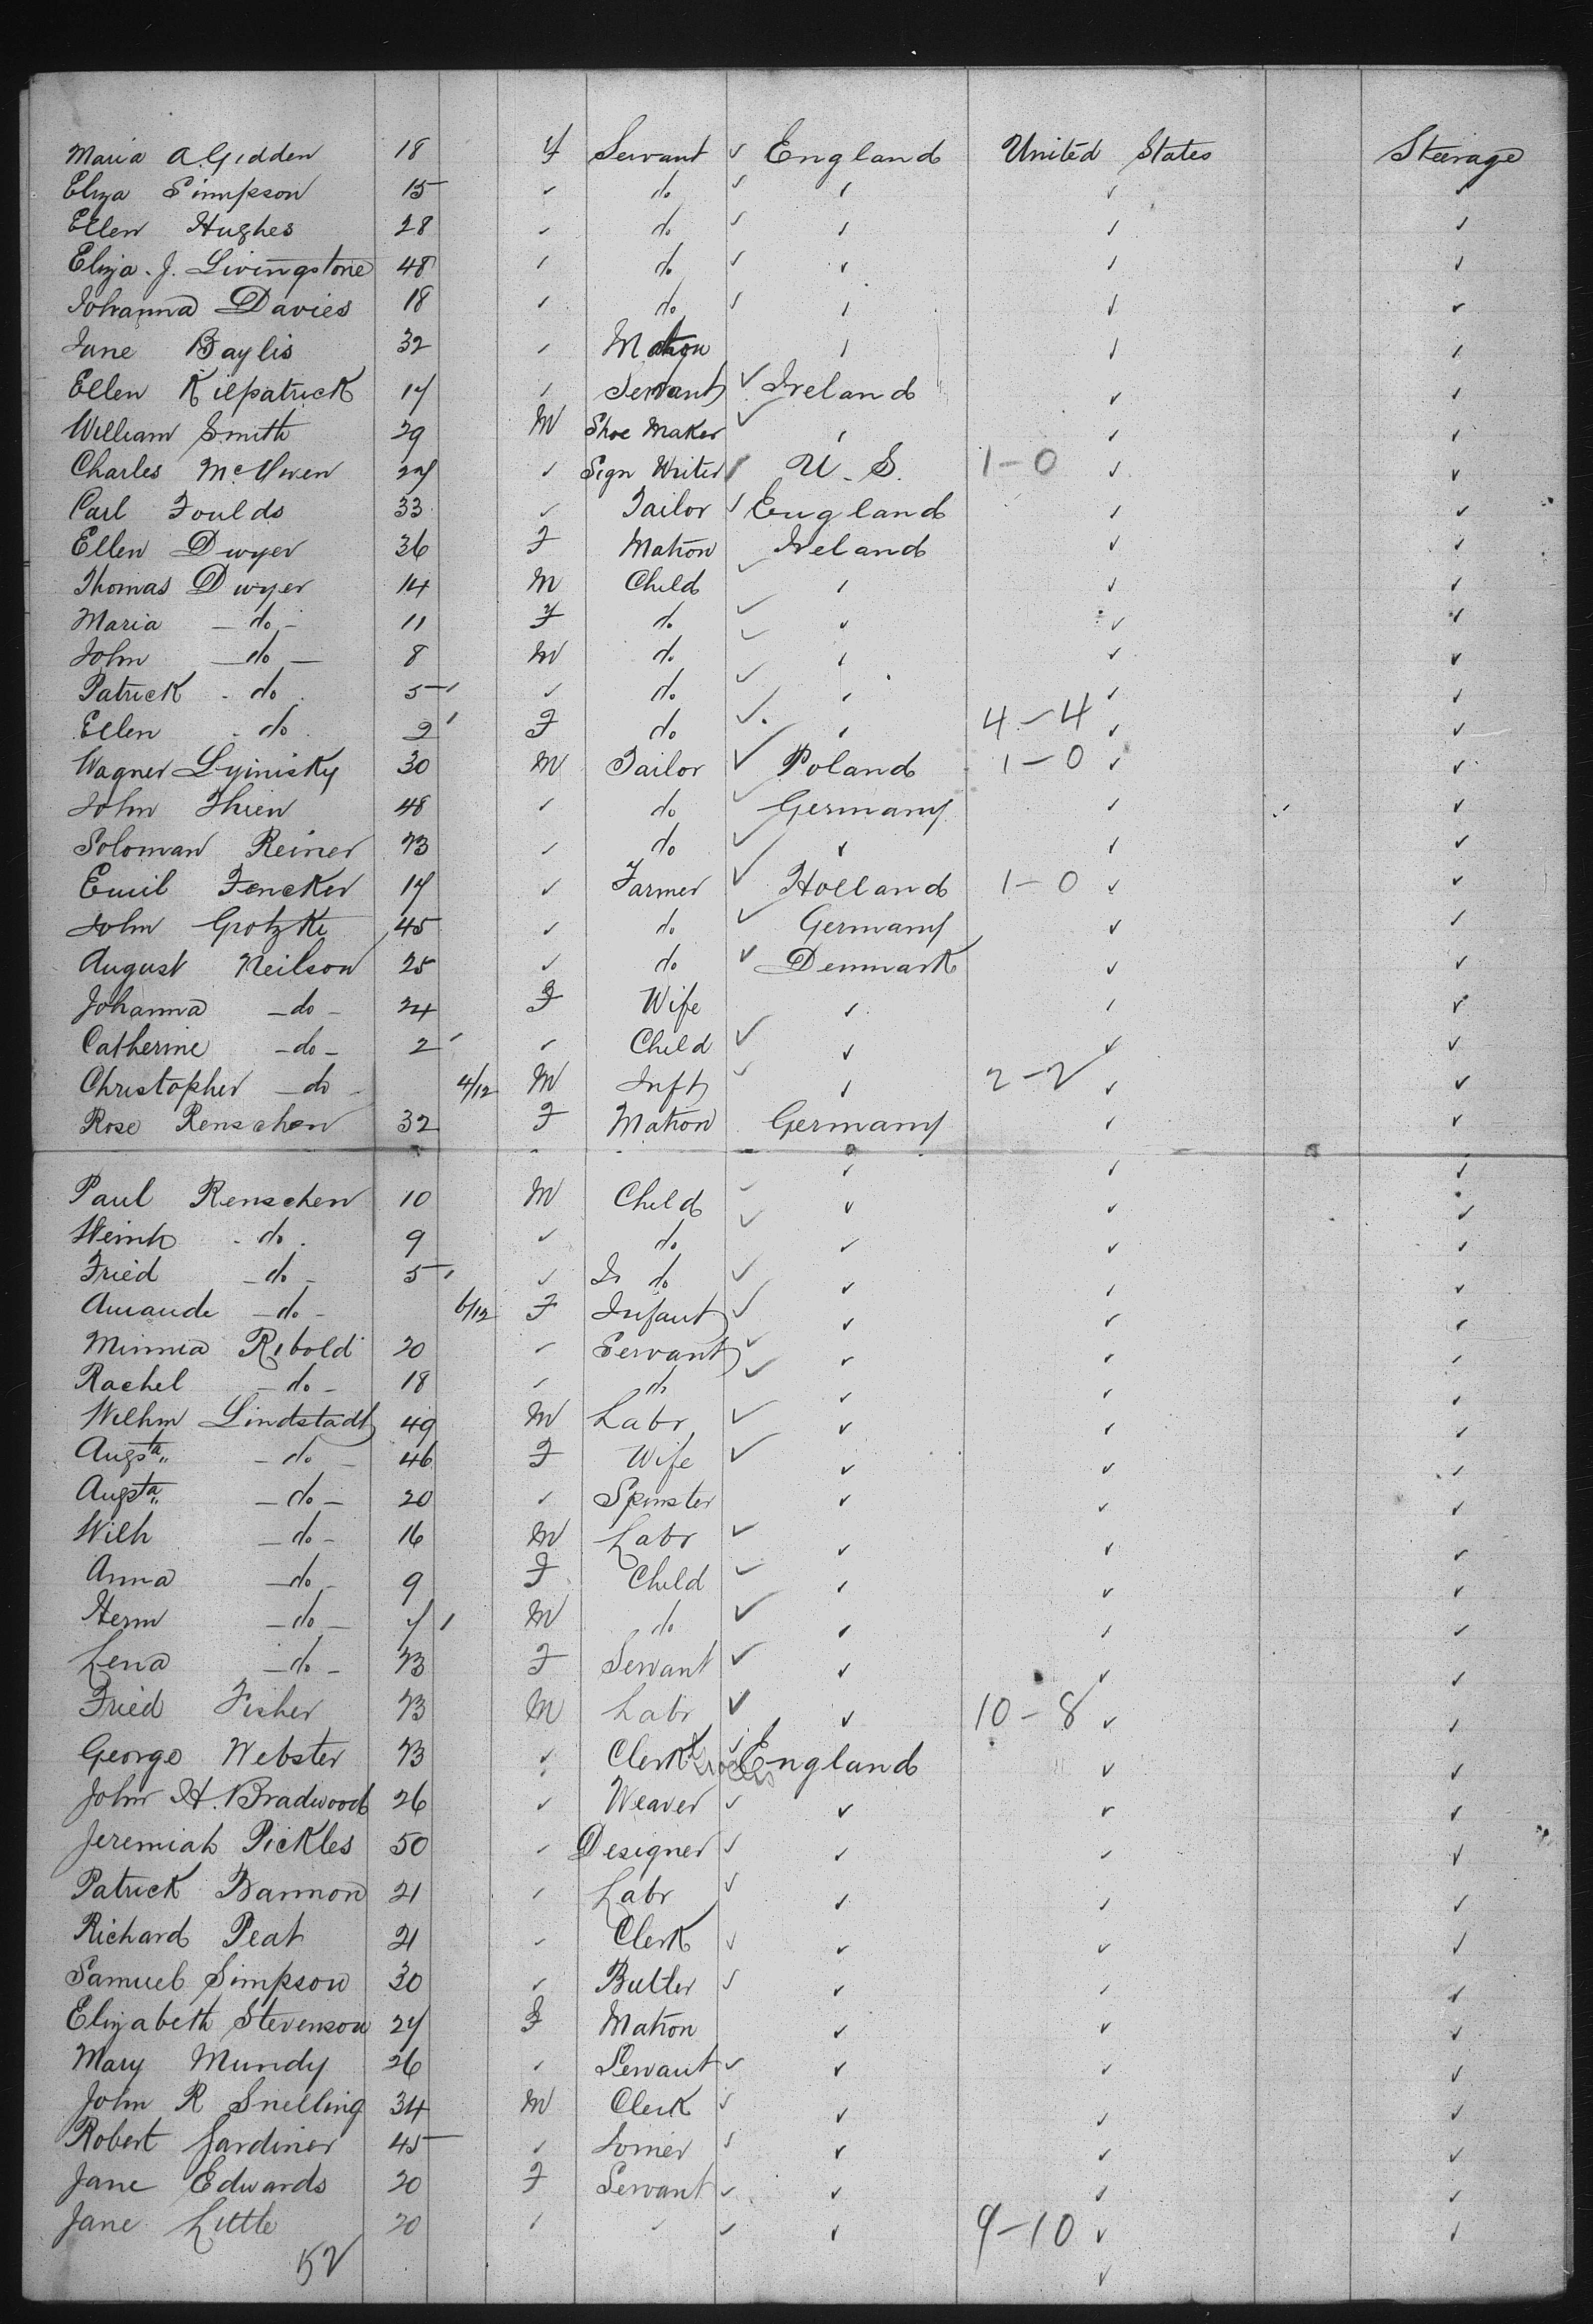 Maria A. Gidden 18 F Servant ✓ England United States Steerage
Eliza Simpson 15 ✓ do ✓ ✓ ✓ ✓
Ellen Hughes 28 ✓ do ✓ ✓ ✓ ✓
Eliza. J. Livingstone 48 ✓ do ✓ ✓ ✓ ✓
Johanna Davies 18 ✓ do ✓ ✓ ✓ ✓
Jane Baylis 32 ✓ Matron ✓ ✓ ✓
Ellen Kilpatrick 17 ✓ Servant ✓ Ireland ✓ ✓
William Smith 29 M Shoe Maker ✓ ✓ ✓ ✓
Charles 27 ✓ Sign Writer ✓ U. S. 1-0 ✓ ✓
Carl Foulds 33 ✓ Tailor ✓ England ✓ ✓
Ellen Dwyer 36 F Matron Ireland ✓ ✓
Thomas Dwyer 14 M Child ✓ ✓ ✓ ✓
Maria - do - 11 F do ✓ ✓ ✓ ✓
John - do - 8 M do ✓ ✓ ✓ ✓
Patrick - do 5 ✓ do ✓ ✓ ✓ ✓
Ellen - do 2 F do ✓ ✓ 4-4 ✓ ✓
Wagner 30 M Tailor ✓ Poland 1-0 ✓ ✓
John Thien 48 ✓ do ✓ Germany ✓ ✓ ✓
Soloman Reiner 23 ✓ do ✓ ✓ ✓ ✓
Emil Fencker 17 ✓ Farmer ✓ Holland 1-0 ✓ ✓
John Grotzke 45 ✓ do ✓ Germany ✓ ✓
August Neilson 25 ✓ do ✓ Denmark ✓ ✓
Johanna - do - 24 F Wife ✓ ✓ ✓
Catherine - do - 2 ✓ Child ✓ ✓ ✓ ✓
Christopher - do 4/12 M Inft ✓ ✓ 2-2 ✓ ✓
Rose Renschen 32 F Matron Germany ✓ ✓
Paul Renschen 10 M Child ✓ ✓ ✓ ✓
Heinh - do - 9 ✓ do ✓ ✓ ✓ ✓
Fried - do - 5 ✓ do ✓ ✓ ✓ ✓
Amande - do - 6/12 F Infant ✓ ✓ ✓ ✓
Minnia Ribold 20 ✓ Servant ✓ ✓ ✓ ✓
Rachel - do - 18 ✓ do ✓ ✓ ✓ ✓
Wilhm Lindstadt 49 M Labr ✓ ✓ ✓ ✓
Augsta - do - 46 F Wife ✓ ✓ ✓ ✓
Augsta - do - 20 ✓ Spinster ✓ ✓ ✓
Wilh - do - 16 M Labr ✓ ✓ ✓ ✓
Anna - do - 9 F Child ✓ ✓ ✓ ✓
Herm - do - 7 M do ✓ ✓ ✓ ✓
Lena - do - 23 F Servant ✓ ✓ ✓ ✓
Fried Fisher 23 M Labr ✓ ✓ 10-8 ✓ ✓
George Webster 23 ✓ Clerk ✓ England ✓ ✓
John H. Bradwood 26 ✓ Weaver ✓ ✓ ✓ ✓
Jeremiah Pickles 50 ✓ Designer ✓ ✓ ✓ ✓
Patrick Bannon 21 ✓ Labr ✓ ✓ ✓ ✓
Richard Peat 21 ✓ Clerk ✓ ✓ ✓ ✓
Samuel Simpson 30 ✓ Butler ✓ ✓ ✓ ✓
Elizabeth Stevenson 27 F Matron ✓ ✓ ✓
Mary Mundy 26 ✓ Servant ✓ ✓ ✓ ✓
John R Snelling 34 M Clerk ✓ ✓ ✓ ✓
Robert Gardiner 45 ✓ Joiner ✓ ✓ ✓ ✓
Jane Edwards 20 F Servant ✓ ✓ ✓ ✓
Jane Little 20 ✓ ✓ ✓ ✓ 9-10 ✓ ✓
52 ✓